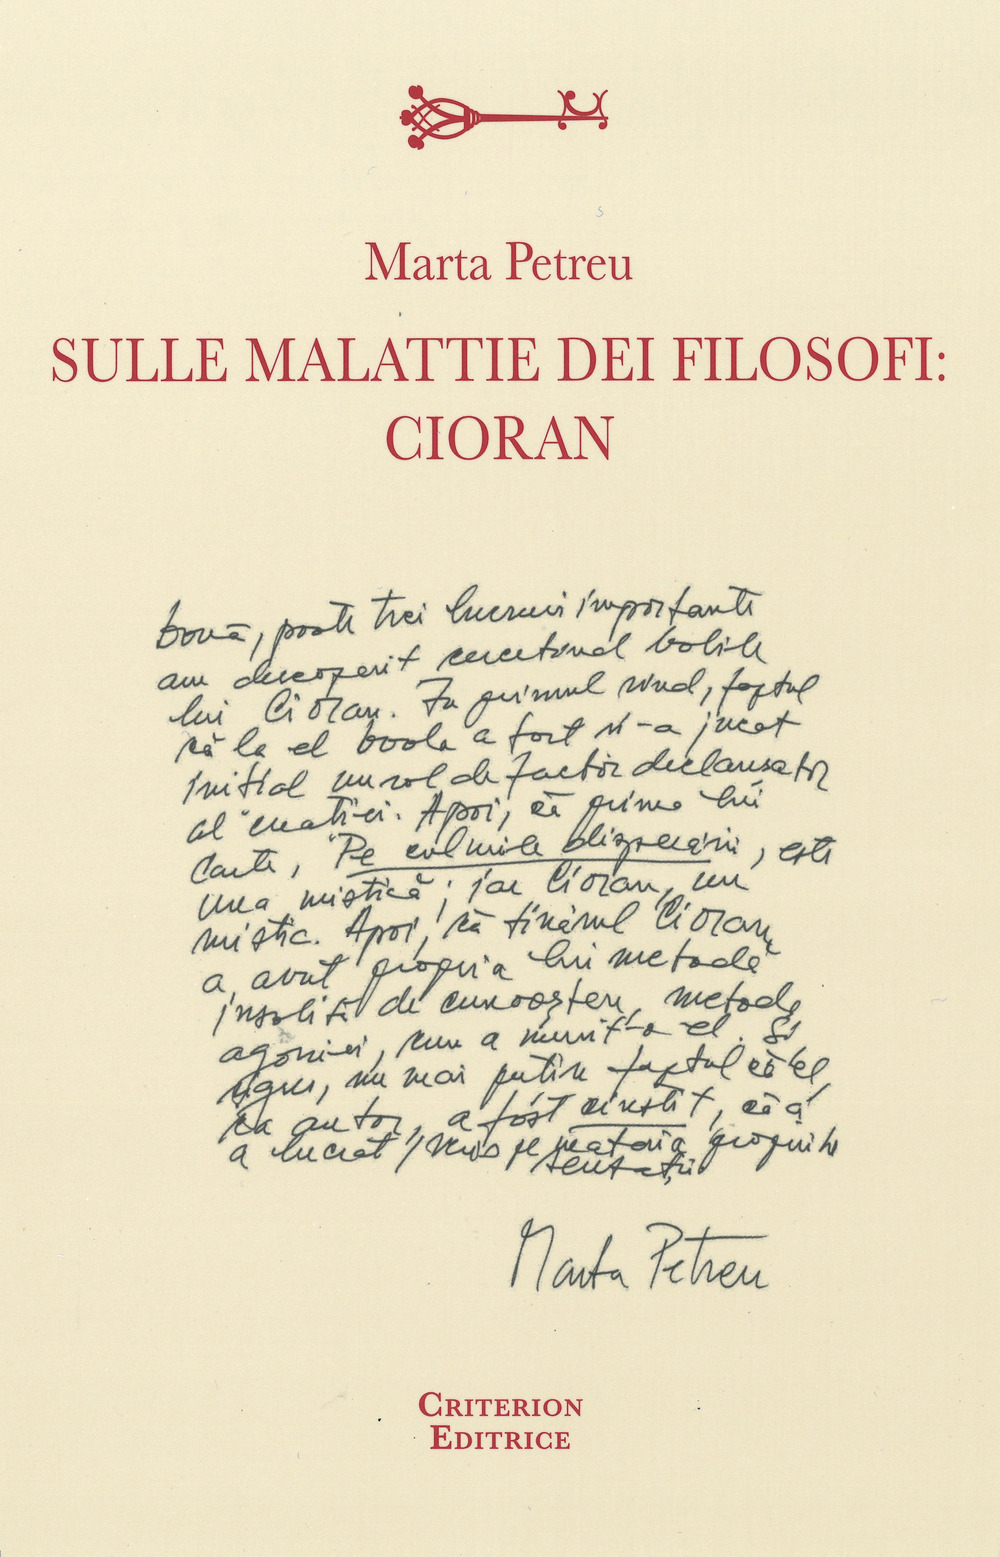 Marta Petreu
SULLE MALATTIE DEI FILOSOFI:
CIORAN
Două, poate trei lucruri importante
am descoperit cercetând bolile
lui Cioran. În primul rînd, faptul
că la el boala a fost și-a jucat
inițial un rol de factor declanșator
al creației. Apoi, că prima lui
carte, Pe culmile disperării, este
una mistică; iar Cioran, un
mistic. Apoi, că tînărul Cioran
a avut propria lui metodă
insolită de cunoaștere, metoda
agoniei, cum a numit-o el. Și
sigur, nu mai puțin faptul că el,
ca autor, a fost cinstit, că a
a lucrat, scris pe materia propriile
senzații
Marta Petreu
CRITERION
EDITRICE